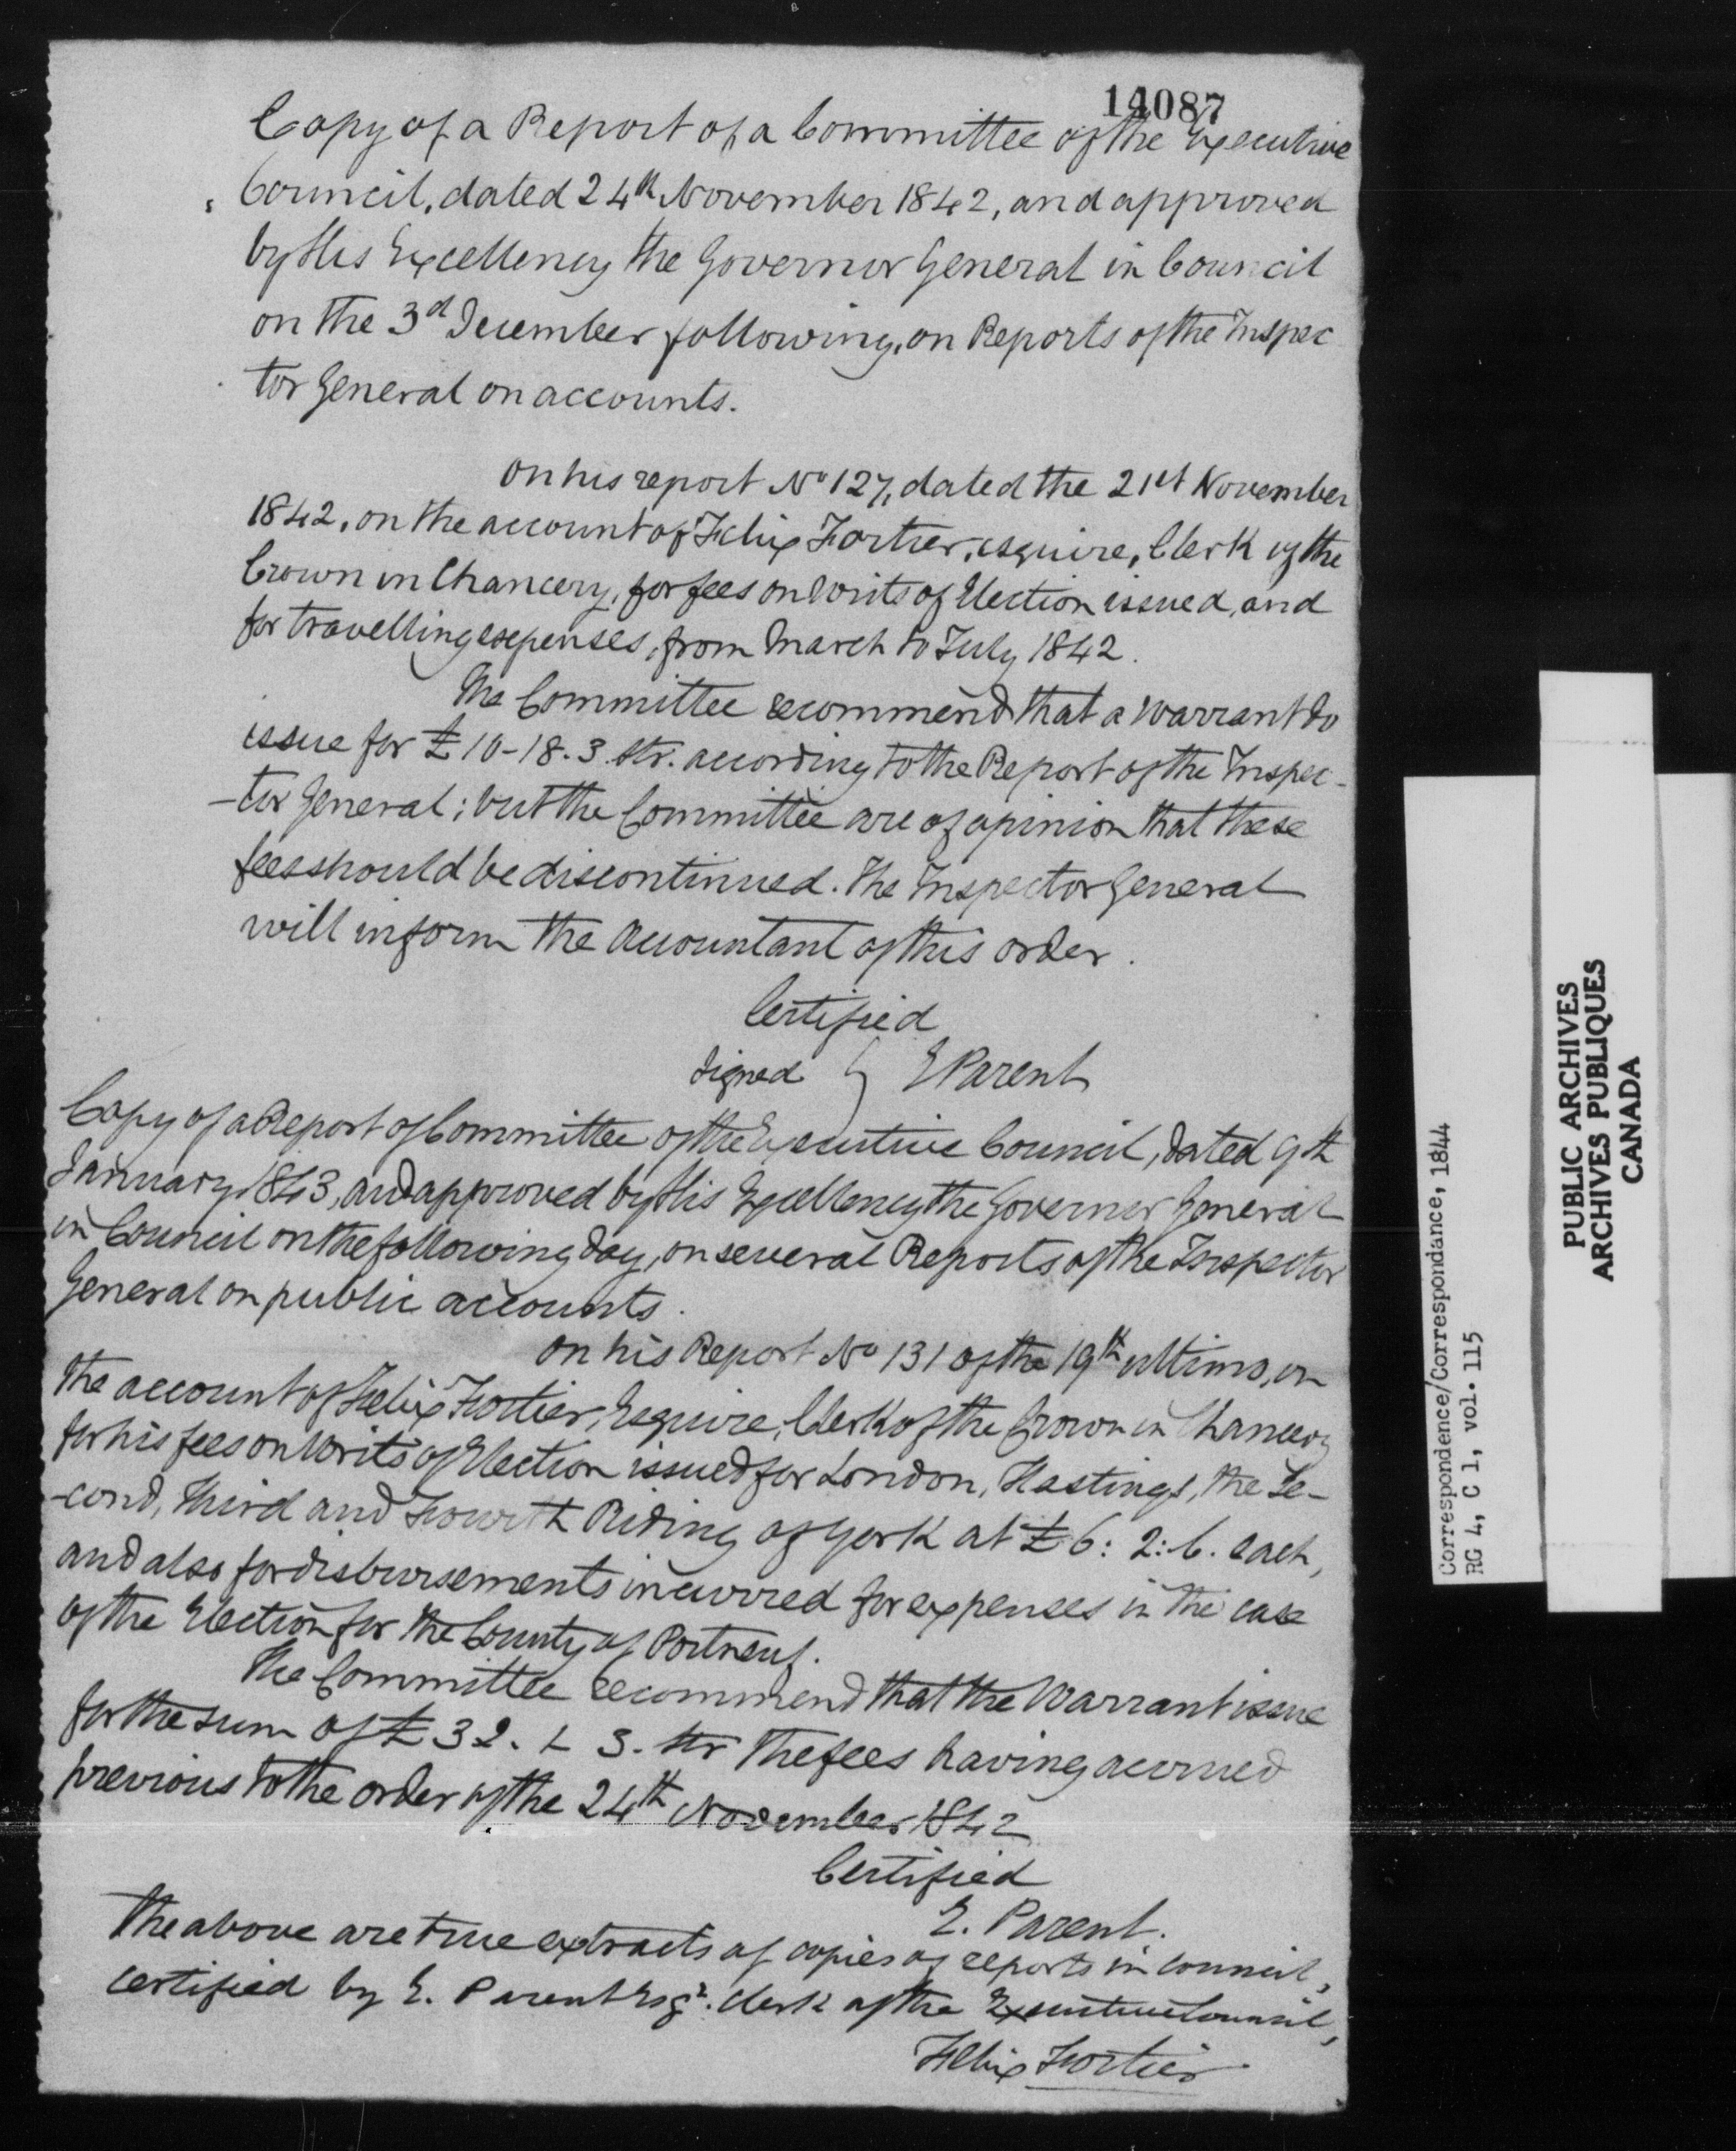 14087
Copy of a Report of a Committee of the Executive
Council, dated 24th November 1842, and approved
by His Excellency the Governor General in Council
on the 3d December following, on Reports of the Inspec
tor General on accounts.
On his report No 127, dated the 21st November
1842, on the account of Felix Fortier, esquire, Clerk of the
Crown in Chancery, for fees on Writs of Election issued, and
for travelling expenses, from March to July 1842.
The Committee recommend that a Warrant do
issue for £10-18.3. str. according to the Report of the Inspec-
-tor General; but the Committee are of opinion that these
fees should be discontinued. The Inspector General
will inform the Accountant of this order.
Certified
Signed E Parent
Copy of a Report of Committee of the Executive Council, dated 9th
January 1843, and approved by His Excellency the Governor General
in Council on the following day, on several Reports of the Inspector
General on public accounts.
On his Report No 131 of the 19th ultimo, on
the account of Felix Fortier, Esquire, Clerk of the Crown in Chancery
for his fees on Writs of Election issued for London, Hastings, the Se-
-cond, Third and Fourth Riding of York at £6: 2: 6. each,
and also for disbursements incurred for expenses in the case
of the Election for the County of Portneuf.
The Committee recommend that the Warrant issue
for the sum of £32. 3. str The fees having accrued
previous to the order of the 24th November 1842
Certified
E. Parent.
The above are true extracts of copies of reports in council,
certified by E. Parent Esqr. clerk of the Executive Council,
Felix Fortier
Correspondence/Correspondance, 1844
RG 4, C 1, vol. 115
PUBLIC ARCHIVES
ARCHIVES PUBLIQUES
CANADA